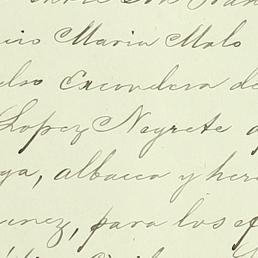 cio Maria Malo
elso Escondera de
Lopez Negrete a
ga, albacea y here
unez, para los ef